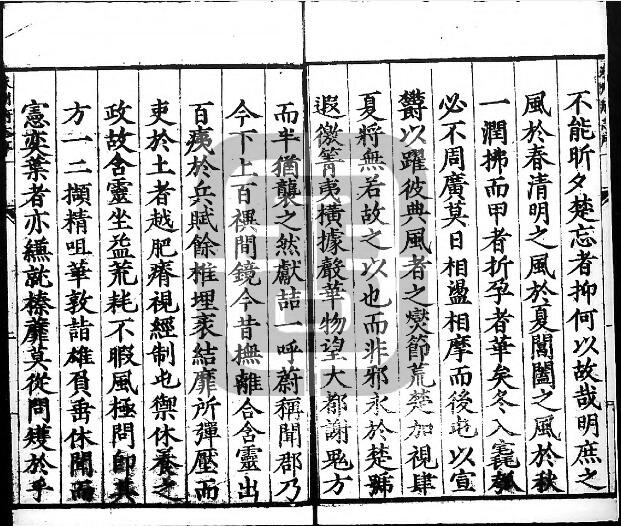 不能昕夕楚忘者抑何以故哉明庶之
風於春清明之風於夏閶闔之風於秋
一潤拂而甲者折孕者華矣冬入
必不周廣莫日相盪相摩而後屯以宣
欝以躍彼典風者之爕節荒楚加視肆
夏將無若故之以也而非邪永於楚號
遐徼箐夷橫據聲華物望大都謝
而半猶襲之然獻喆一呼蔚稱聞郡乃
今下上百禩間鏡今昔撫離合含靈出
百痍於兵賦餘椎埋裒結靡所彈壓而
吏於土者越肥瘠視經制屯禦休養之
政故含靈坐益荒耗不暇風極問即其
方一二擷精咀華敦詣雄負耑休聞而
憲奕葉者亦繇就榛蘼莫從問矱於乎